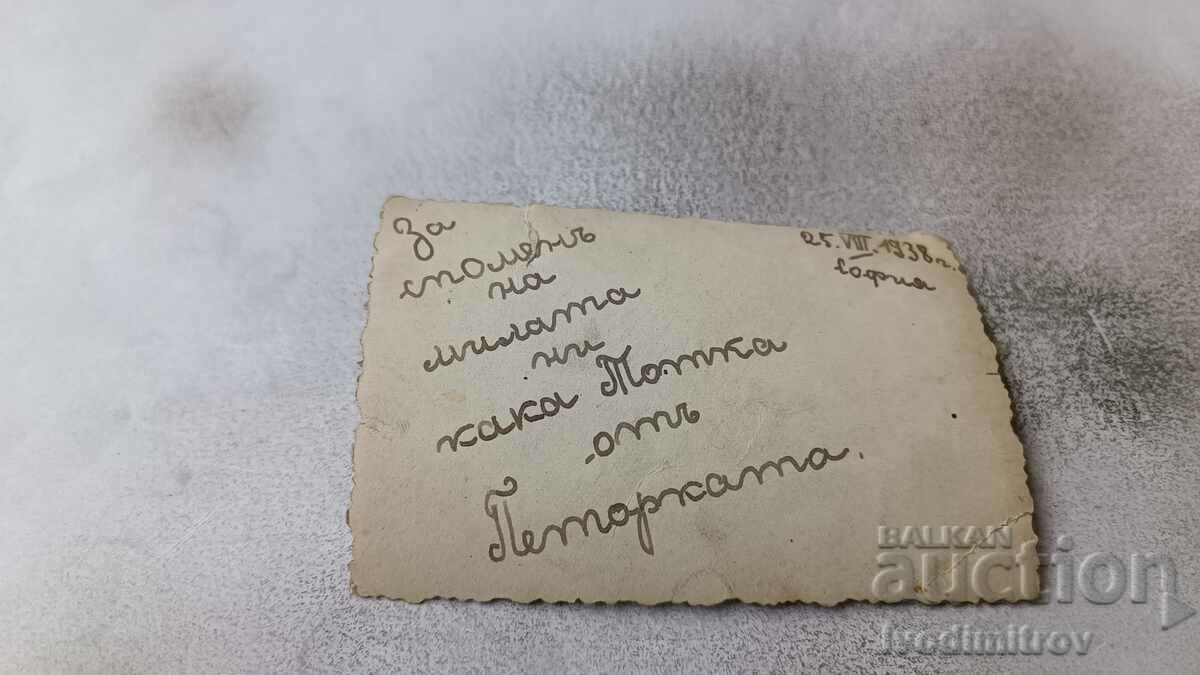 За
споменъ
на
милата
ни
кака Тотка
отъ
Петорката.
25.VIII.1938 г.
София
BALKAN
auction
ivodimitrov